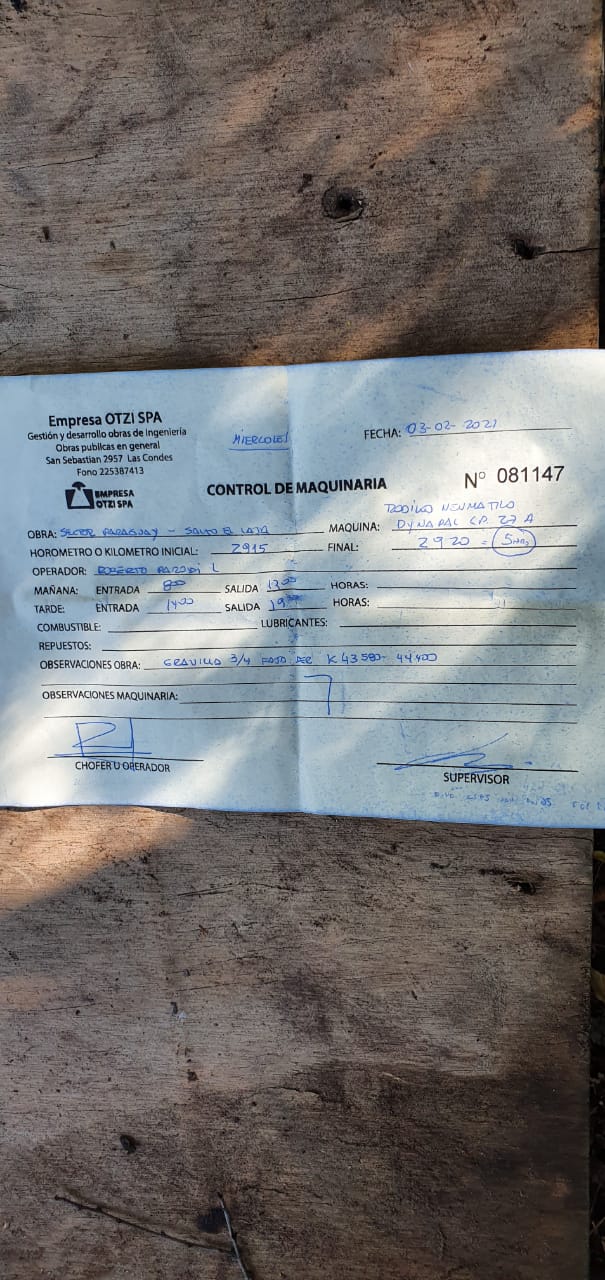 Empresa OTZI SPA
Gestión y desarrollo obras de Ingeniería
Obras publicas en general
San Sebastian 2957 Las Condes
Fono 225387413
EMPRESA
OTZI SPA
MIERCOLES
FECHA: 03-02-2021
CONTROL DE MAQUINARIA
N° 081147
OBRA: SECTOR PARAGUAY - SALTO EL LAJA
MAQUINA: RODILLO NEUMATICO
DYNAPAC CP 27 A
HOROMETRO O KILOMETRO INICIAL: 2915
FINAL: 2920 = 5 HRS
OPERADOR: ROBERTO L
MAÑANA: ENTRADA 800 SALIDA 1300 HORAS:
TARDE: ENTRADA 1400 SALIDA 19 HORAS:
COMBUSTIBLE: LUBRICANTES:
REPUESTOS:
OBSERVACIONES OBRA: GRAVILLA 3/4 K 43500 - 44400
OBSERVACIONES MAQUINARIA:
CHOFER U OPERADOR
SUPERVISOR